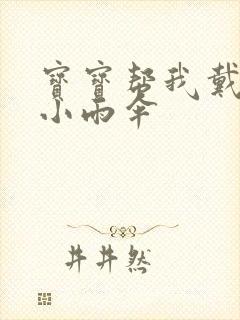 寶寶帮我戴
小雨伞
井井然